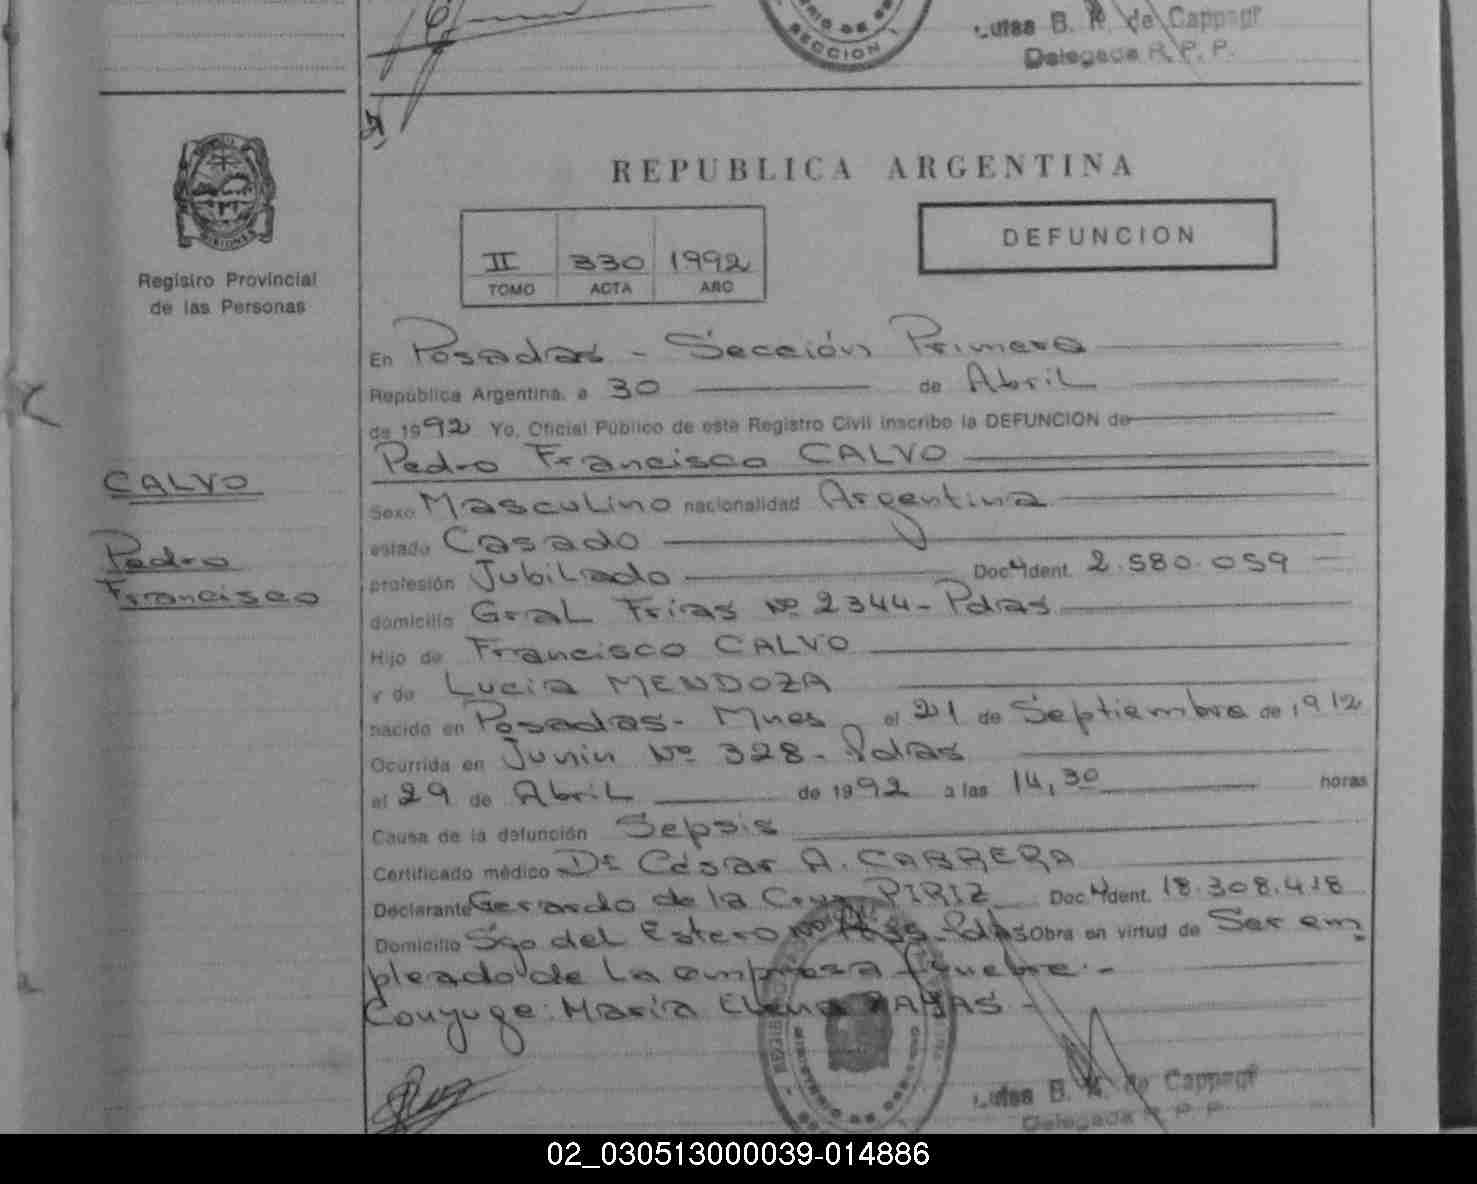 SECCION
Luisa B. R. de Cappagl
Delegada R. P. P.
REPUBLICA ARGENTINA
DEFUNCION
II 330 1992
TOMO ACTA AÑO
Registro Provincial
de las Personas
MISIONES
En Posadas - Sección Primera
República Argentina, a 30 de Abril
de 1992 Yo, Oficial Público de este Registro Civil inscribo la DEFUNCION de
Pedro Francisco CALVO
CALVO
Pedro
Francisco
Sexo Masculino nacionalidad Argentina
estado Casado
profesión Jubilado Doc. Ident. 2.580.059
domicilio Gral Frias Nº 2344 - Pdas
Hijo de Francisco CALVO
y de Lucia MENDOZA
nacido en Posadas - Mnes el 21 de Septiembre de 1912
Ocurrida en Junin Nº 328 - Pdas
el 29 de Abril de 1992 a las 14,30 horas
Causa de la defunción Sepsis
Certificado médico Dr César A. CABRERA
Declarante Gerardo de la Cruz PIRIZ Doc. Ident. 18.308.418
Domicilio Sgo del Estero Nº Pdas Obra en virtud de Ser em
pleado de La empresa fúnebre. -
Conyuge: María Elena -
Luisa B. R. de Cappagl
Delegada R. P. P.
02_030513000039-014886